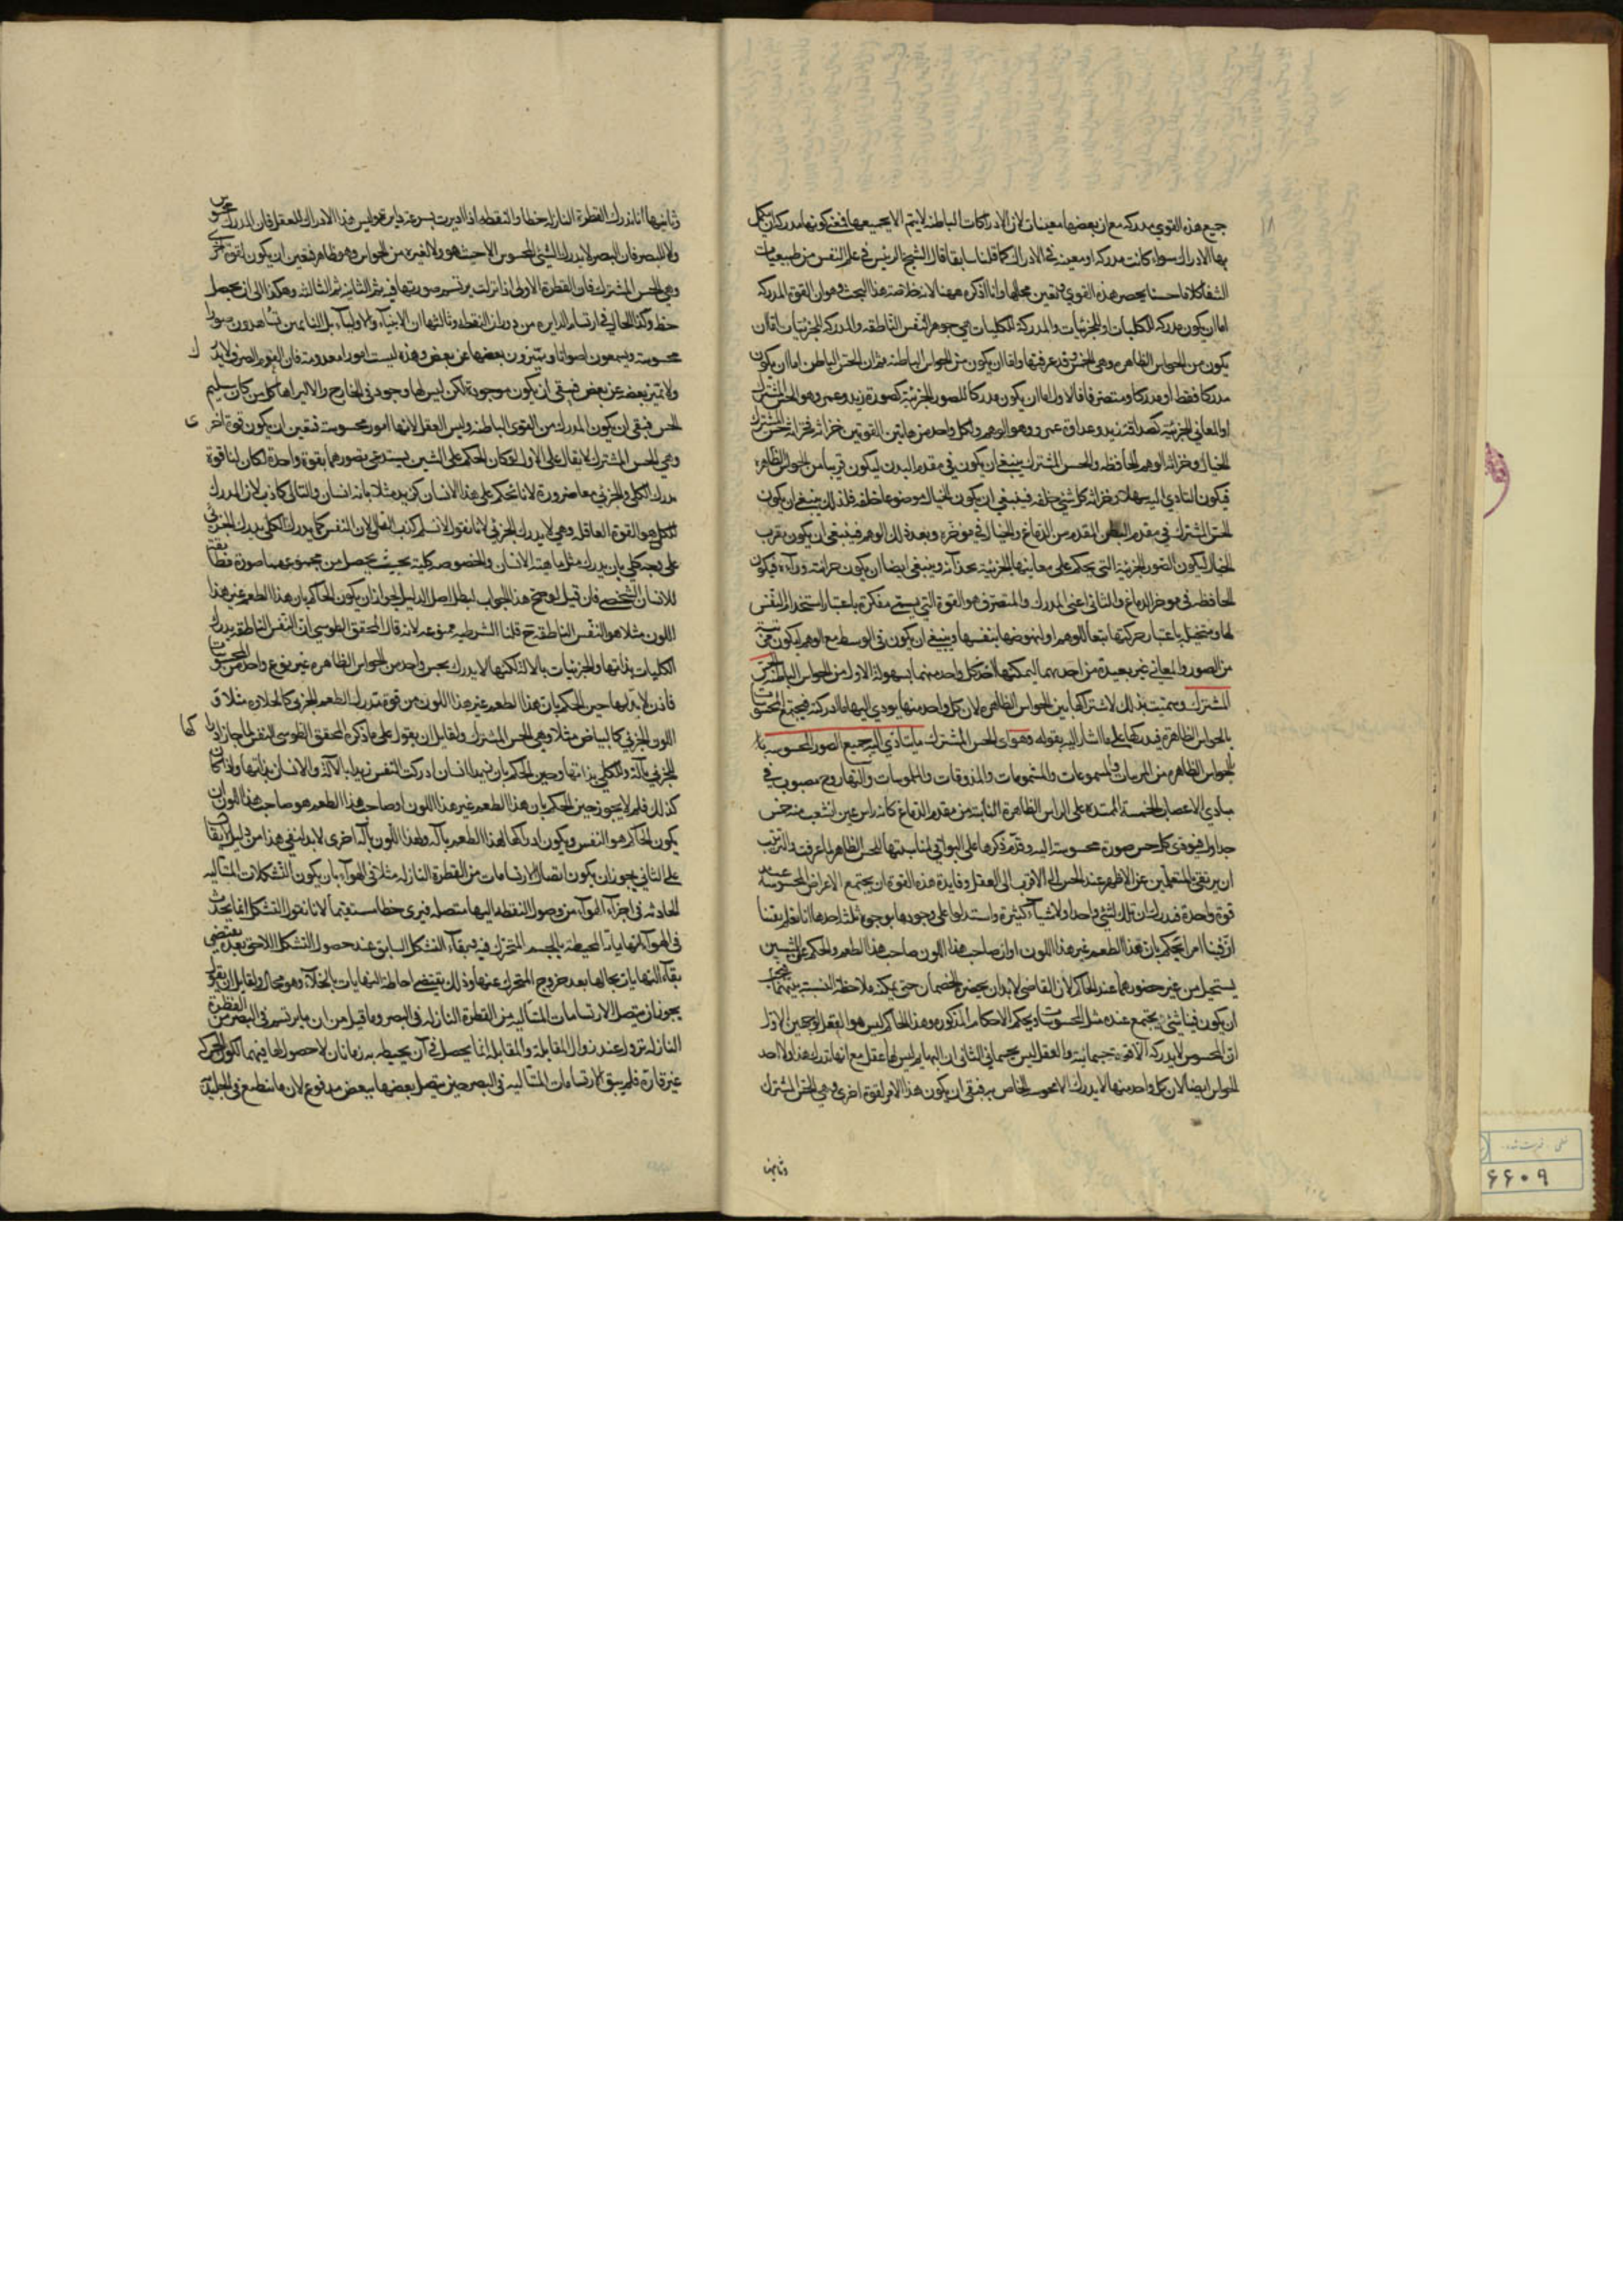 جميع هذه القوي مدركه مع ان بعضها معينات لان الادراكات الباطنه لا يتم الا بجميعها فمعنى كونها مدركه ان يكمل
بها الادراك سواء كانت مدركه او معينه في الادراك كما قلنا سابقا قال الشيخ الرئيس في علم النفس من طبيعيات
الشفا كلاما حسنا يحصر هذه القوي و تعين محلها وانا اذكره ههنا لانه خلاصة هذا البحث وهو ان القوة المدركه
اما ان يكون مدركه للكليات او للجزئيات والمدركة للكليات هي جوهر النفس الناطقه والمدركه للجزئيات اما ان
يكون من الحواس الظاهره وهي الخمس وقد عرفتها واما ان يكون من الحواس الباطنه ثم ان الحس الباطن اما ان يكون
مدركا فقط او مدركا ومتصرفا فالاول اما ان يكون مدركا للصور الجزئية كصورة زيد وعمرو وهو الحس المشترك
او المعاني الجزئية كصداقة زيد وعداوة عمرو وهو الوهم ولكل واحد من هاتين القوتين خزانه فخزانة الحس المشترك
الخيال وخزانة الوهم الحافظه والحس المشترك ينبغي ان يكون في مقدم البدن ليكون قريبا من الحواس الظاهره
فيكون التادي اليه سهلا وخزانة كل شيء خلفه فينبغي ان يكون الخيال موضوعا خلفه فلذلك ينبغي ان يكون
الحس المشترك في مقدم البطن المقدم من الدماغ والخيال في موخره وبعد ذلك الوهم فينبغي ان يكون بقرب
الخيال ليكون الصور الجزئية التي يحكم على معانيها الجزئية بحذائه وينبغي ايضا ان يكون خزانته ورآءه فيكون
الحافظه في موخر الدماغ والثاني اعني المدرك والمتصرف هو القوة التي يسمى مفكرة باعتبار استخدام النفس
لها ومتخيله باعتبار حركتها تبعا للوهم او لنهوضها بنفسها وينبغي ان يكون في الوسط مع الوهم ليكون قريبة
من الصور والمعاني غير بعيدة من احدهما ليمكنها اخذ كل واحد منهما بسهوله الاول من الحواس الباطنه الحس
المشترك وسميت بذلك لاشتراكها بين الحواس الظاهره لان كل واحد منها يودي اليها ما ادركته فيجتمع المحسوسات
بالحواس الظاهرة فيدركها على ما اشار اليه بقوله وهو اي الحس المشترك ما يتادي اليه جميع الصور المحسوسه
بالحواس الظاهره من المرئيات والمسموعات والمشمومات والمذوقات والملموسات والتها روح مصبوب في
مبادي الاعصاب الخمسة الممتده على الراس الظاهرة النابته من مقدم الدماغ كانه راس عين انشعب منه خمس
جداول فيودى كل حس صورة محسوسته اليه وقدم ذكرها على البواقي لمناسبتها للحس الظاهر لما عرفت والترتيب
ان يرتقى بالمتعلمين عن الاظهر عند الحس الى الاقرب الى العقل وفايدة هذه القوة ان يجتمع الاعراض المحسوسه عند
قوة واحدة فيدرك ان تلك لشيء واحد او لاشيآء كثيرة واستدلوا على وجودها بوجوه ثلثة احدها انا نعلم يقينا
ان فينا امرا يحكم بان هذا الطعم غير هذا اللون او ان صاحب هذا اللون صاحب هذا الطعم والحكم على الشيئين
يستحيل من غير حضورهما عند الحاكم لان القاضي لا بد ان يحضره الخصمان حتى يمكنه ملاحظة النسبة بينهما فيجب
ان يكون فينا شيء يجتمع عنده مثل المحسوسات ويحكم الاحكام المذكوره وهذا الحاكم ليس هو العقل لوجهين الاول
ان المحسوس لا يدركه الا قوة جسمانية والعقل ليس بجسماني الثاني ان البهايم ليس لها عقل مع انها تدرك هذا ولا احد
الحواس ايضا لان كل واحد منها لا يدرك الا محسوسه الخاص به فبقى ان يكون هذا الامر لقوة اخرى وهي الحس المشترك
وثانيها
وثانيها انا ندرك القطرة النازله خطا والنقطه اذا اديرت بسرعة دايرة وليس هذا الادراك للعقل فان المدرك محسوس
ولا للبصر فان البصر لا يدرك الشيء المحسوس الا حيث هو ولا لغيره من الحواس وهو ظاهر فتعين ان يكون لقوة اخرى
وهي الحس المشترك فان القطرة الاولى اذا نزلت يرتسم صورتها فيه ثم الثانيه ثم الثالثه وهكذا الى ان يحصل
خط وكذا الحال في ارتسام الدايره من دوران النقطه وثالثها ان الانبيآء والاوليآء بل النايمين تشاهدون صورا
محسوسه ويسمعون اصواتا ويتميزون بعضها عن بعض وهذه ليست امورا معدومة فان العدم الصرف لا يدرك
ولا تميز بعضه عن بعض فبقى ان يكون موجودة لكن ليس لها وجود في الخارج والا لراها كل من كان سليم
الحس فبقى ان يكون المدرك من القوى الباطنه وليس العقل لانها امور محسوسه فتعين ان يكون قوة اخرى
وهي الحس المشترك لا يقال على الاول لو كان الحكم على الشيئين يستدعي تصورهما بقوة واحدة لكان لنا قوة
مدرك الكلى والجزئي معا ضرورة لانا نحكم على هذا الانسان كزيد مثلا بانه انسان والتالي كاذب لان المدرك
للكلي هو القوة العاقله وهي لا يدرك الجزئي لانا نقول لا نسلم كذب التالي لان النفس كما يدرك الكلي يدرك الجزئي
على وجه كلي بان يدرك مثل ماهية الانسان والخصوصه كلية بحيث يحصل من مجموعهما صورة مطابقة
للانسان الشخصي فان قيل لو صح هذا الجواب لبطل اصل الدليل لجواز ان يكون الحاكم بان هذا الطعم غير هذا
اللون مثلا هو النفس الناطقة ح قلنا الشرطيه ممنوعه لانه قال المحقق الطوسي ان النفس الناطقه يدرك
الكليات بذاتها والجزئيات بالالة لكنها لا يدرك بحس واحد من الحواس الظاهره غير نوع واحد من المحسوسات
فاذن لا بد لها حين الحكم بان هذا الطعم غير هذا اللون من قوة تدرك الطعم الجزئي كالحلاوه مثلا و
اللون الجزئي كالبياض مثلا وهي الحس المشترك ولقايل ان يقول على ما ذكره المحقق الطوسي النفس لما جاز ادراكها
للجزئي بآلة والكلي بذاتها وحين الحكم بان زيدا انسان ادركت النفس زيدا بالآلة والانسان بذاتها واذا كان
كذلك فلم لا يجوز حين الحكم بان هذا الطعم غير هذا اللون او صاحب هذا الطعم هو صاحب هذا اللون ان
يكون الحاكم هو النفس ويكون ادراكها لهذا الطعم بآلة ولهذا اللون بآلة اخرى لا بد لنفي هذا من دليل لا يقال
على الثاني يجوز ان يكون اتصال الارتسامات من القطرة النازله مثلا في الهوآء بان يكون التشكلات المتتاليه
الحادثه في اجزآء الهوآء من وصول النقطه اليها متصله فيرى خطا مستقيما لانا نقول التشكل انما يحدث
في الهوآء لنهاياته المحيطه بالجسم المتحرك فيه فبقآء التشكل السابق عند حصول التشكل اللاحق بعده يقتضي
بقآء النهايات بحالها بعد خروج المتحرك عنها وذلك يقتضي احاطة النهايات بالخلآء وهو محال ولقايل ان يقول
يجوز ان يتصل الارتسامات المتتاليه من القطرة النازله في البصر وما قيل من ان ما يرتسم في البصر من القطرة
النازله يزول عند زوال المقابلة والمقابله انما يحصل في آن يحيط به زمانان لا حصول لها فيهما لكون الحركه
غير قارة فلم يبق الارتسامات المتتاليه في البصر حتى يتصل بعضها ببعض مدفوع لان ما ينطبع في الجليديه
۶۶۰۹